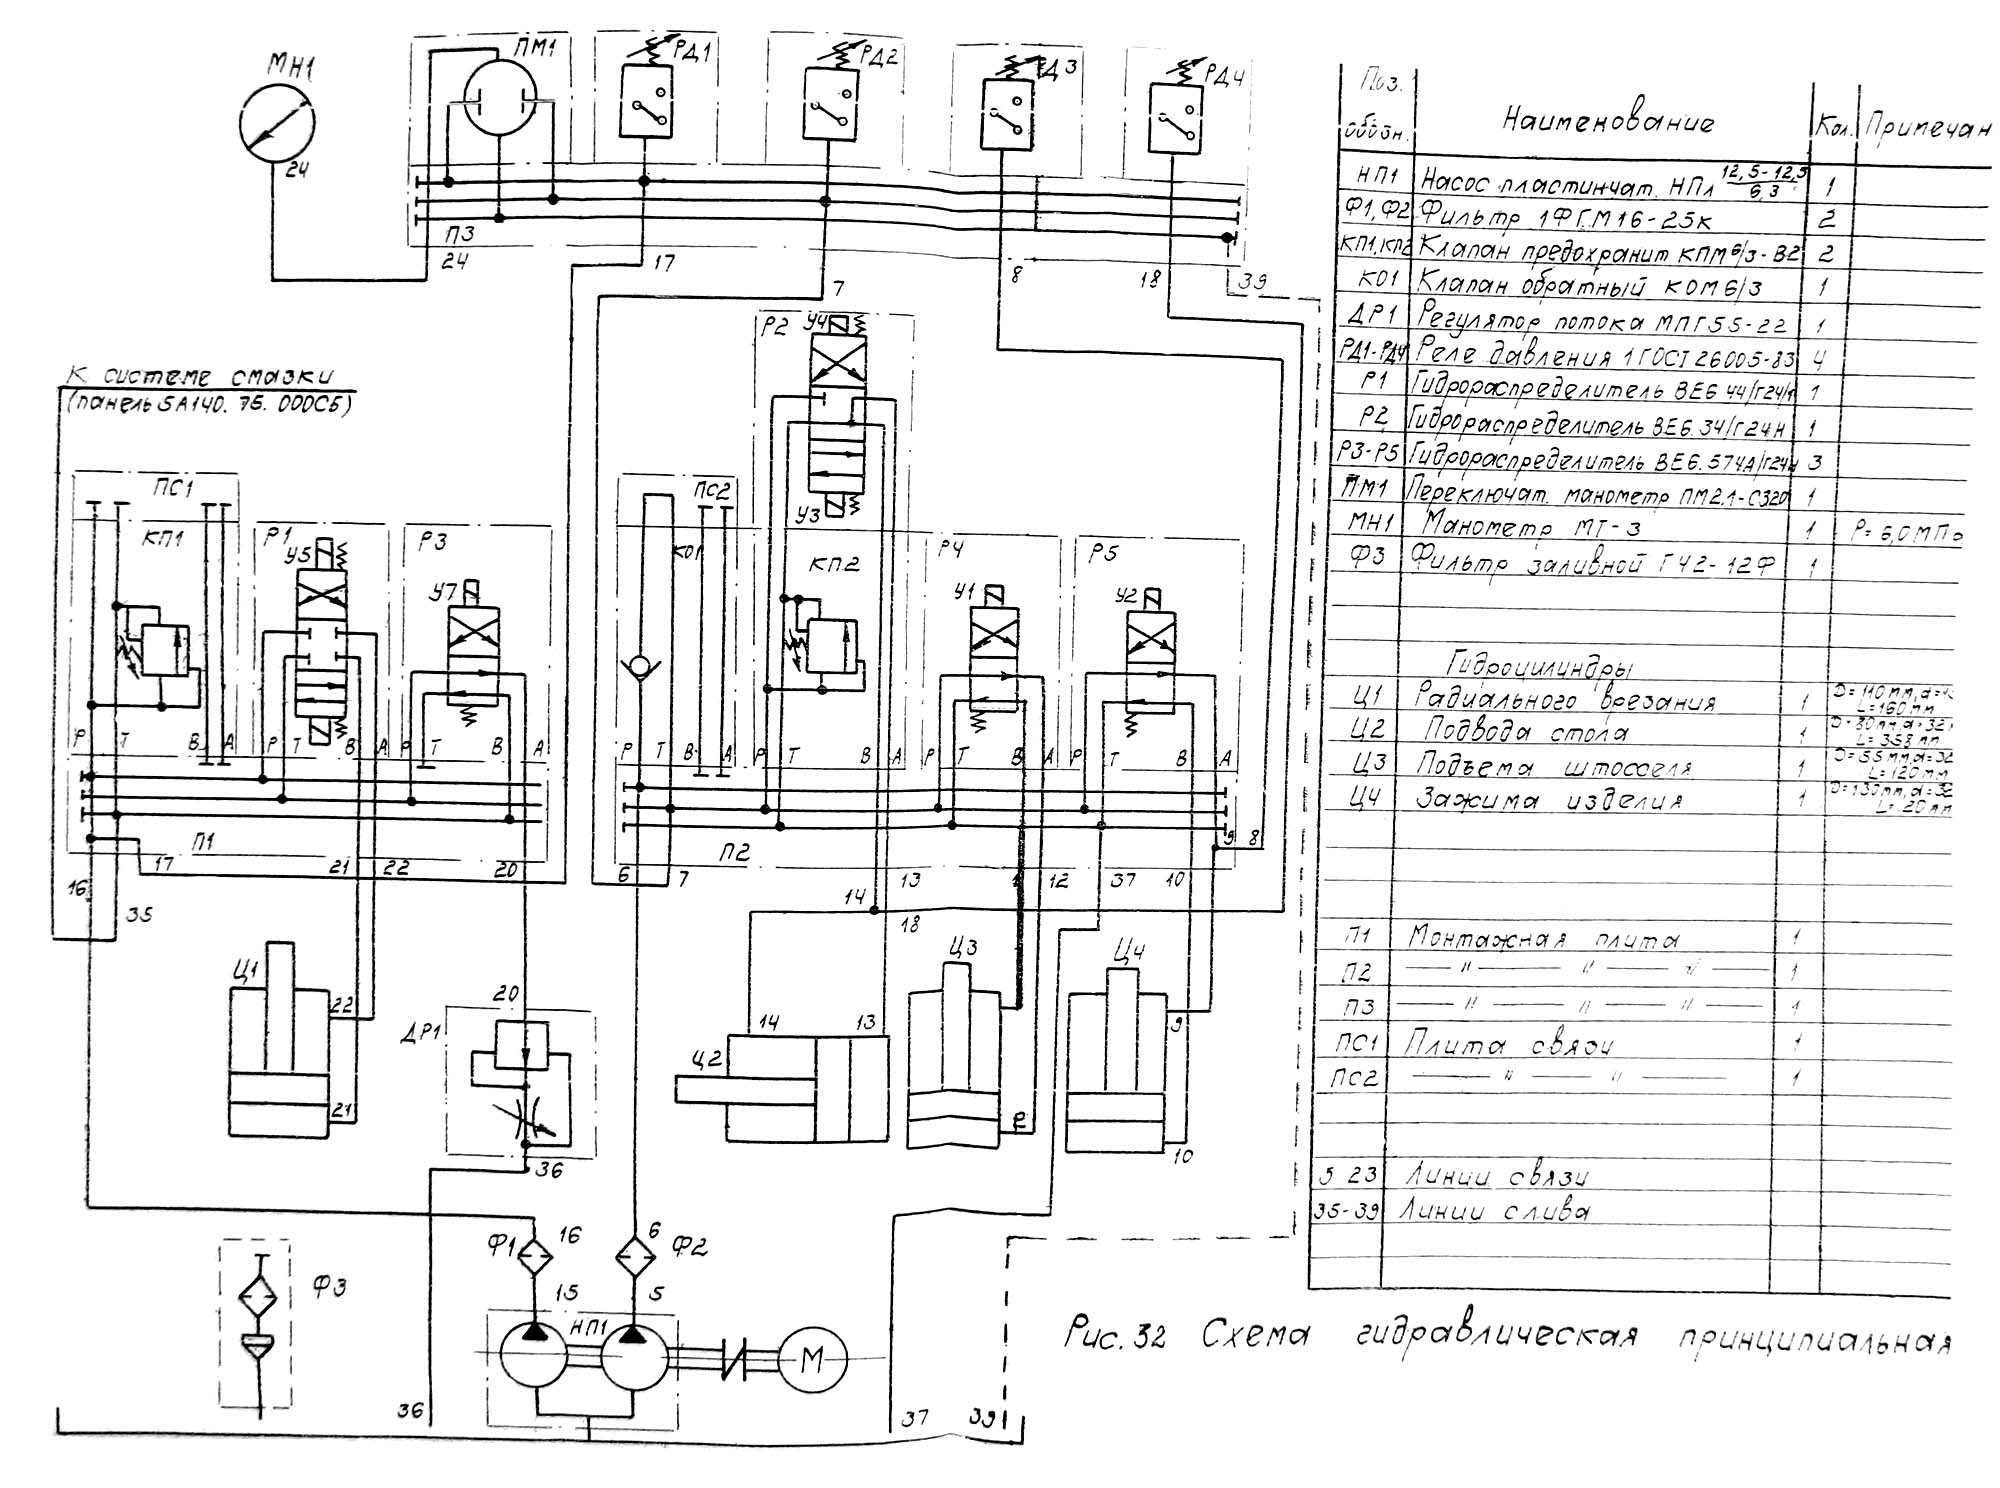 МН1
24
ПМ1
РД1
РД2
Д3
РД4
П3
24
17
7
8
18
39
К системе смазки
(панель 5А140. 75. 000СБ)
ПС1
КП1
Р1
У5
Р3
У7
ПС2
КО1
Р2
У4
У3
КП2
Р4
У1
Р5
У2
Р Т В А Р Т В А Р Т В А
Р Т В А Р Т В А Р Т В А Р Т В А
П1
17
21
22
20
16
35
П2
6
7
14
13
18
12
37
10
9
8
Ц1
22
21
20
ДР1
36
14
13
Ц2
Ц3
Ц4
9
10
Ф1
16
6
Ф2
15
5
НП1
М
Ф3
36
37
39
Поз. обозн. Наименование Кол. Примечан
НП1 Насос пластинчат. НПл 12,5-12,5/6,3 1
Ф1, Ф2 Фильтр 1ФГМ16-25к 2
КП1, КП2 Клапан предохранит КПМ6/3-В2 2
КО1 Клапан обратный КОМ6/3 1
ДР1 Регулятор потока МПГ55-22 1
РД1-РД4 Реле давления 1 ГОСТ 26005-83 4
Р1 Гидрораспределитель ВЕ6 44/Г24Н 1
Р2 Гидрораспределитель ВЕ6.34/Г24Н 1
Р3-Р5 Гидрораспределитель ВЕ6.574А/Г24Н 3
ПМ1 Переключат. манометр ПМ2.1-С320 1
МН1 Манометр МТ-3 1 Р=6,0МПа
Ф3 Фильтр заливной Г42-12Ф 1
Гидроцилиндры
Ц1 Радиального врезания 1 D=110мм, L=160мм
Ц2 Подвода стола 1 D=80мм, d=32 L=358мм
Ц3 Подъема штосселя 1 D=55мм, d=32 L=120мм
Ц4 Зажима изделия 1 D=130мм, d=32 L=20мм
П1 Монтажная плита 1
П2 —"—"—"— 1
П3 —"—"—"— 1
ПС1 Плита связи 1
ПС2 —"—"— 1
5 23 Линии связи
35-39 Линии слива
Рис. 32 Схема гидравлическая принципиальная